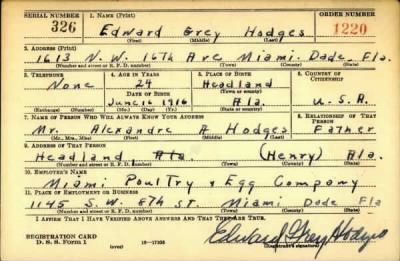 SERIAL NUMBER 1. NAME (Print) ORDER NUMBER
326 Edward Grey Hodges 1220
(First) (Middle) (Last)
2. ADDRESS (Print)
1613 N.W. 16th Ave Miami Dade Fla.
(Number and street or R. F. D. number) (Town) (County) (State)
3. TELEPHONE 4. AGE IN YEARS 5. PLACE OF BIRTH 6. COUNTRY OF CITIZENSHIP
None 24 Headland
DATE OF BIRTH (Town or county)
June 16 1916 Ala. U.S.A.
(Exchange) (Number) (Mo.) (Day) (Yr.) (State or country)
7. NAME OF PERSON WHO WILL ALWAYS KNOW YOUR ADDRESS 8. RELATIONSHIP OF THAT PERSON
Mr. Alexandre A Hodges Father
(Mr., Mrs., Miss) (First) (Middle) (Last)
9. ADDRESS OF THAT PERSON
Headland Ala. (Henry) Ala.
(Number and street or R. F. D. number) (Town) (County) (State)
10. EMPLOYER'S NAME
Miami Poultry & Egg Company
11. PLACE OF EMPLOYMENT OR BUSINESS
1145 S.W. 8th St. Miami Dade Fla
(Number and street or R. F. D. number) (Town) (County) (State)
I AFFIRM THAT I HAVE VERIFIED ABOVE ANSWERS AND THAT THEY ARE TRUE.
REGISTRATION CARD
D. S. S. Form 1 (over) 16—17105 Edward Grey Hodges
(Registrant's signature)